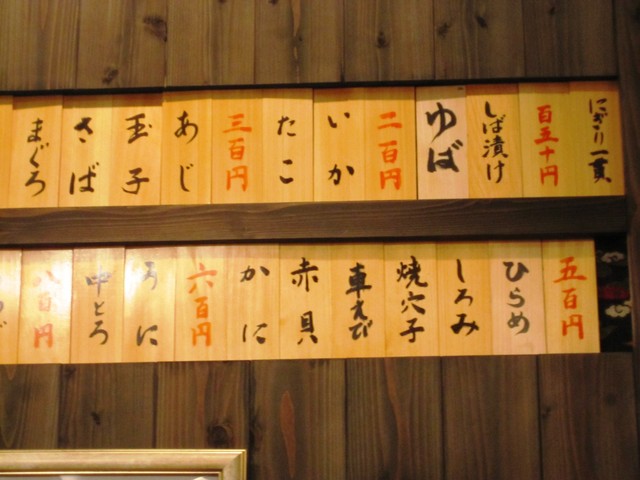 にぎり一貫
百五十円
しば漬け
ゆば
二百円
いか
たこ
三百円
あじ
玉子
さば
まぐろ
五百円
ひらめ
しろみ
焼穴子
車えび
赤貝
かに
六百円
うに
中とろ
八百円